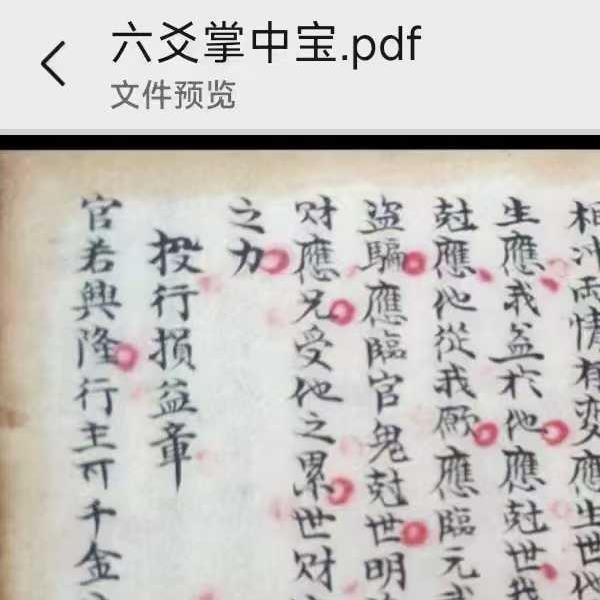 六爻掌中宝.pdf
文件预览
相冲两情有变應生世
生應我益於他應尅世我
尅應他從我願應臨元武
盜騙應臨官鬼尅世明
财應兄受他之累世财
之力
投行損益章
官若興隆行主可千金